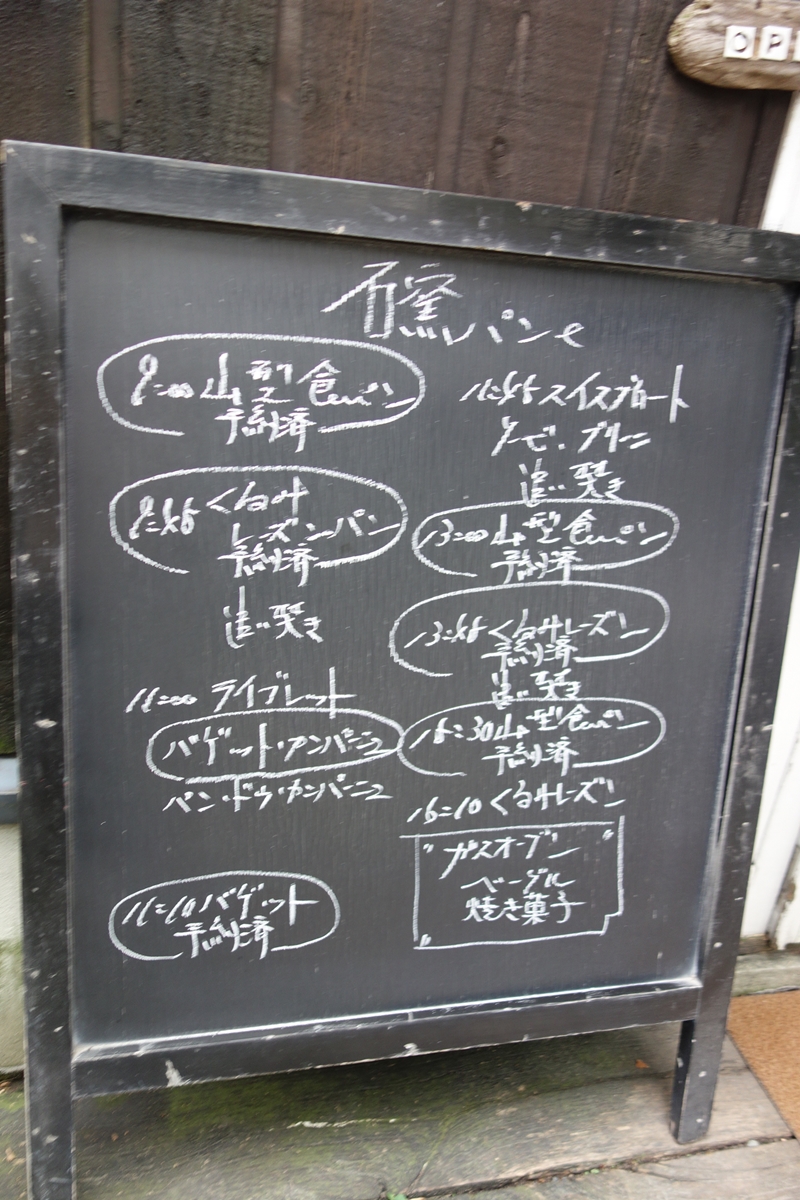 OP
石窯パン
9:00 山型食パン
予約済
9:45 くるみ
レーズンパン
予約済
追い焚き
11:00 ライブレット
バゲット・カンパーニュ
パン・ドゥ・カンパーニュ
11:10 バゲット
予約済
11:45 スイスブロート
追い焚き
13:00 山型食パン
予約済
13:45 くるみレーズン
予約済
追い焚き
15:30 山型食パン
予約済
16:10 くるみレーズン
"ガスオーブン"
ベーグル
焼き菓子